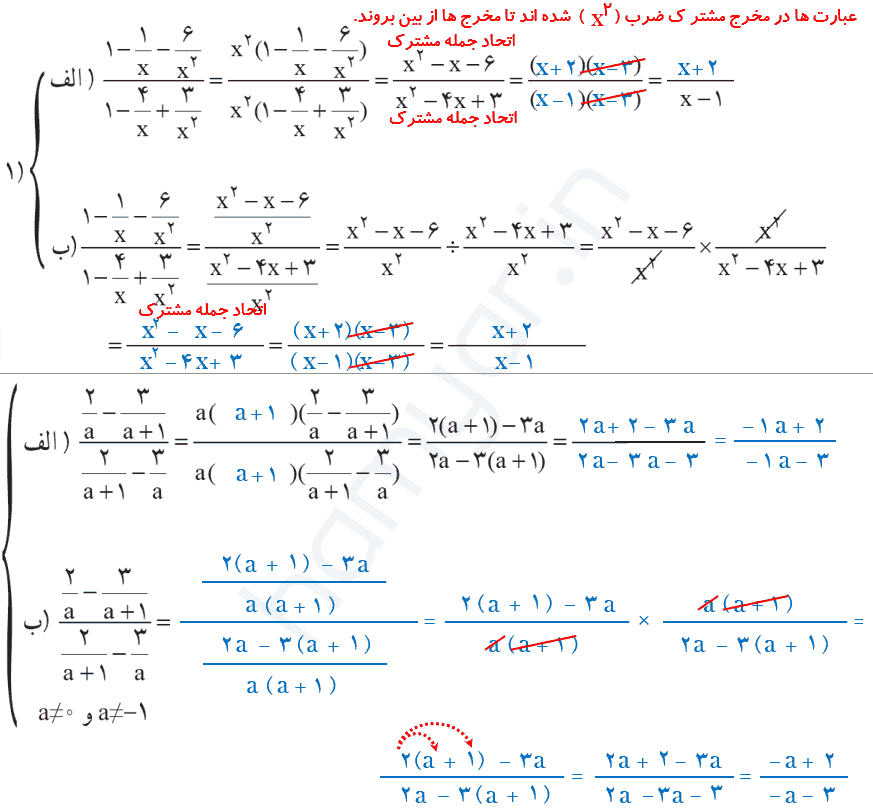 عبارت ها در مخرج مشترک ضرب (x^۲) شده اند تا مخرج ها از بین بروند.
اتحاد جمله مشترک
۱) الف) (۱ - ۱/x - ۶/x^۲)/(۱ - ۴/x + ۳/x^۲) = (x^۲(۱ - ۱/x - ۶/x^۲))/(x^۲(۱ - ۴/x + ۳/x^۲)) = (x^۲ - x - ۶)/(x^۲ - ۴x + ۳) = ((x+۲)(x-۳))/((x-۱)(x-۳)) = (x+۲)/(x-۱)
اتحاد جمله مشترک
ب) (۱ - ۱/x - ۶/x^۲)/(۱ - ۴/x + ۳/x^۲) = ((x^۲ - x - ۶)/x^۲)/((x^۲ - ۴x + ۳)/x^۲) = (x^۲ - x - ۶)/x^۲ ÷ (x^۲ - ۴x + ۳)/x^۲ = (x^۲ - x - ۶)/x^۲ × x^۲/(x^۲ - ۴x + ۳)
اتحاد جمله مشترک
= (x^۲ - x - ۶)/(x^۲ - ۴x + ۳) = ((x+۲)(x-۳))/((x-۱)(x-۳)) = (x+۲)/(x-۱)
الف) (۲/a - ۳/(a+۱))/(۲/(a+۱) - ۳/a) = (a(a+۱)(۲/a - ۳/(a+۱)))/(a(a+۱)(۲/(a+۱) - ۳/a)) = (۲(a+۱) - ۳a)/(۲a - ۳(a+۱)) = (۲a + ۲ - ۳a)/(۲a - ۳a - ۳) = (-۱a + ۲)/(-۱a - ۳)
ب) (۲/a - ۳/(a+۱))/(۲/(a+۱) - ۳/a) = ((۲(a + ۱) - ۳a)/(a(a+۱)))/((۲a - ۳(a + ۱))/(a(a+۱))) = (۲(a + ۱) - ۳a)/(a(a+۱)) × (a(a+۱))/(۲a - ۳(a + ۱)) =
a≠۰ و a≠-۱
(۲(a + ۱) - ۳a)/(۲a - ۳(a + ۱)) = (۲a + ۲ - ۳a)/(۲a - ۳a - ۳) = (-a + ۲)/(-a - ۳)
hamyar.in